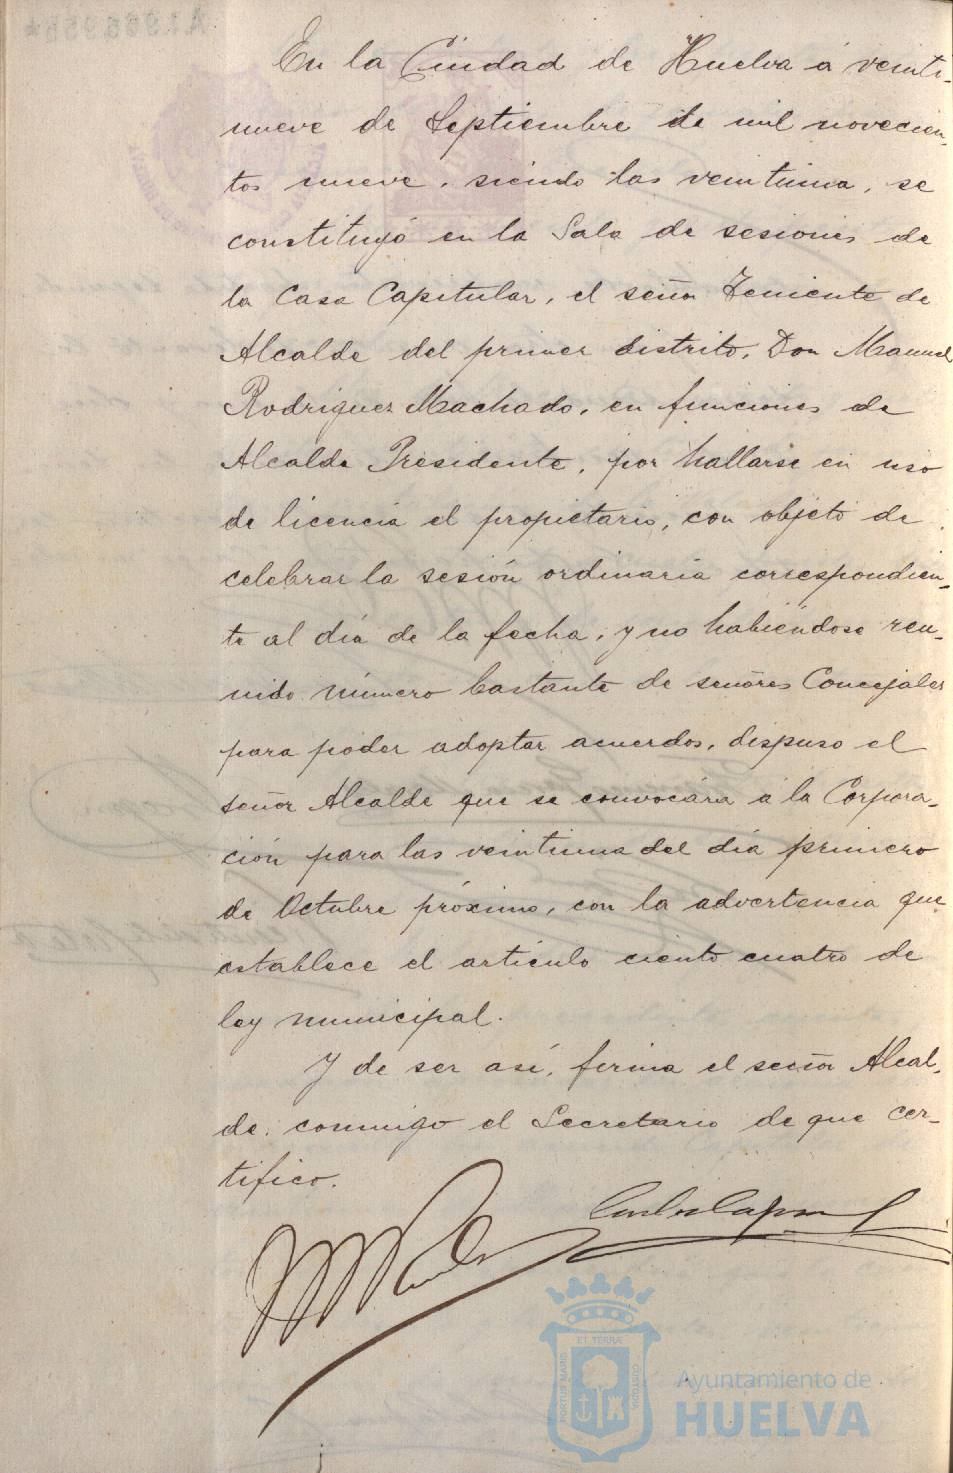 En la Ciudad de Huelva á veinti-
nueve de Septiembre de mil novecien-
tos nueve, siendo las veintiuna, se
constituyó en la Sala de sesiones de
la Casa Capitular, el señor Teniente de
Alcalde del primer distrito, Don Manuel
Rodriguez Machado, en funciones de
Alcalde Presidente, por hallarse en uso
de licencia el propietario, con objeto de
celebrar la sesión ordinaria correspondien-
te al día de la fecha, y no habiéndose reu-
nido número bastante de señores Concejales
para poder adoptar acuerdos, dispuso el
señor Alcalde que se convocára á la Corpora-
ción para las veintiuna del día primero
de Octubre próximo, con la advertencia que
establece el artículo ciento cuatro de
ley municipal.
Y de ser así, firma el señor Alcal-
de, conmigo el Secretario de que cer-
tifico.
PORTUS MARIS
ET TERRÆ
CUSTODIA
Ayuntamiento de
HUELVA